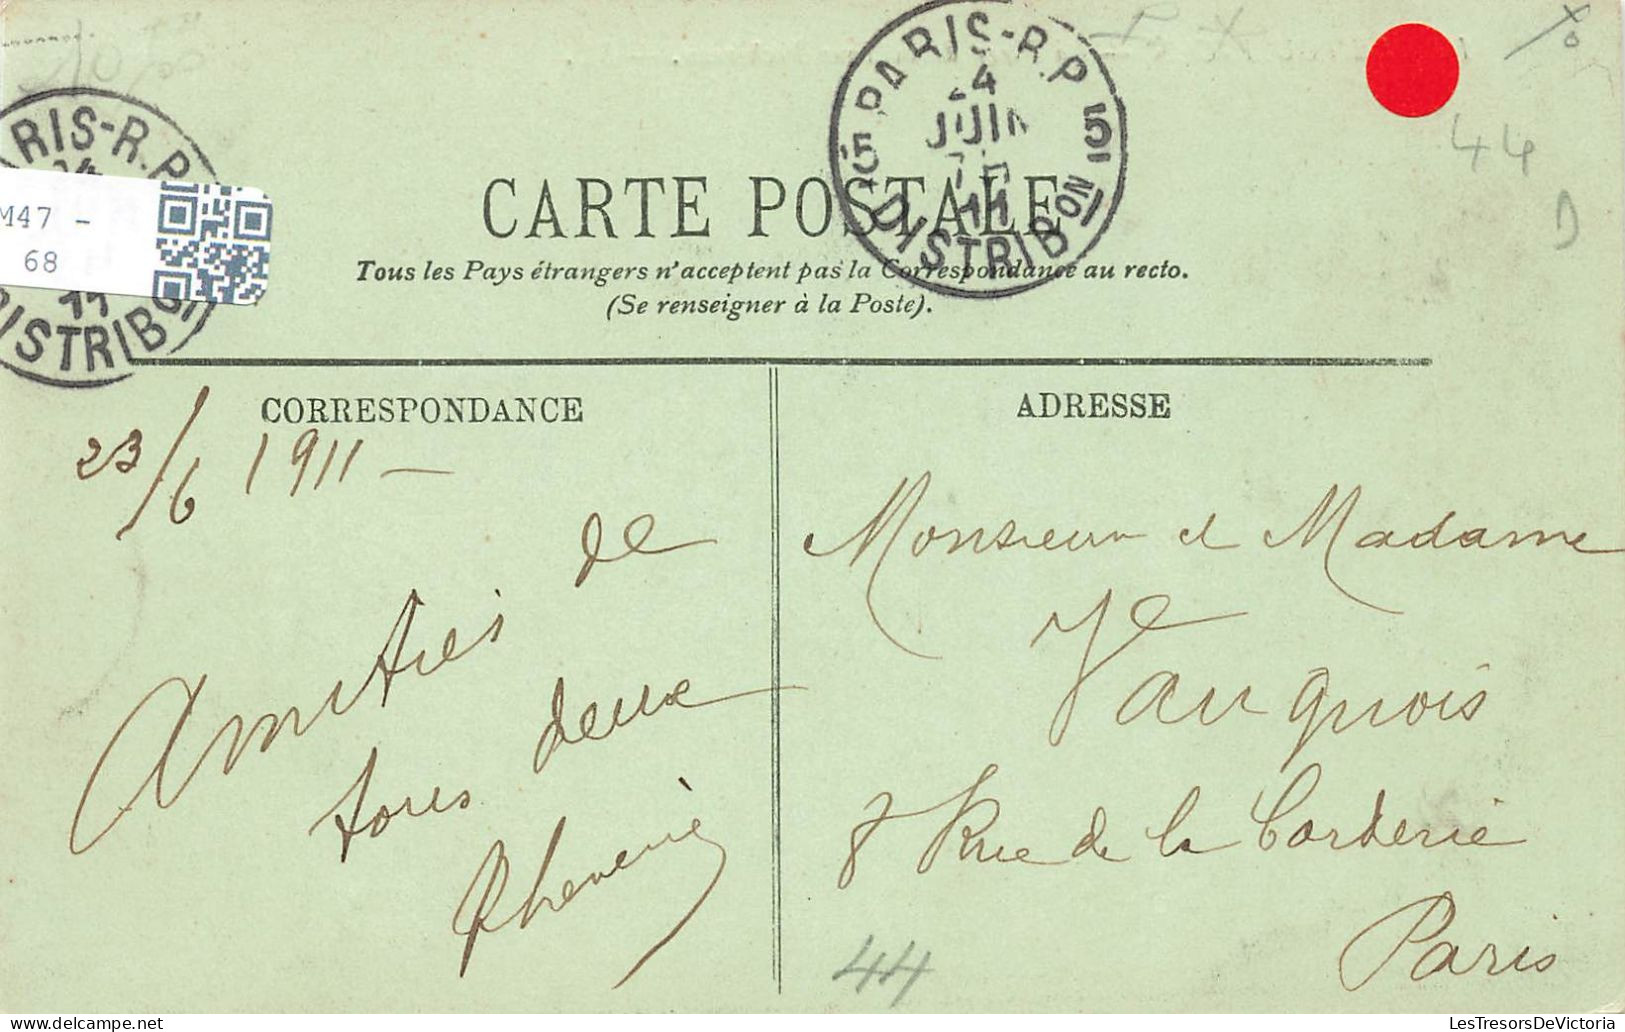 PARIS-R.P.
24
JUIN
11
5 DISTRIBON 5
RIS-R.P.
24
11
DISTRIBON
M47 -
68
44
D
CARTE POSTALE
Tous les Pays étrangers n'acceptent pas la Correspondance au recto.
(Se renseigner à la Poste).
CORRESPONDANCE
23/6 1911 -
Amitiés de
tous deux
ADRESSE
Monsieur et Madame
Vauquois
8 Rue de la Corderie
Paris
44
LesTresorsDeVictoria